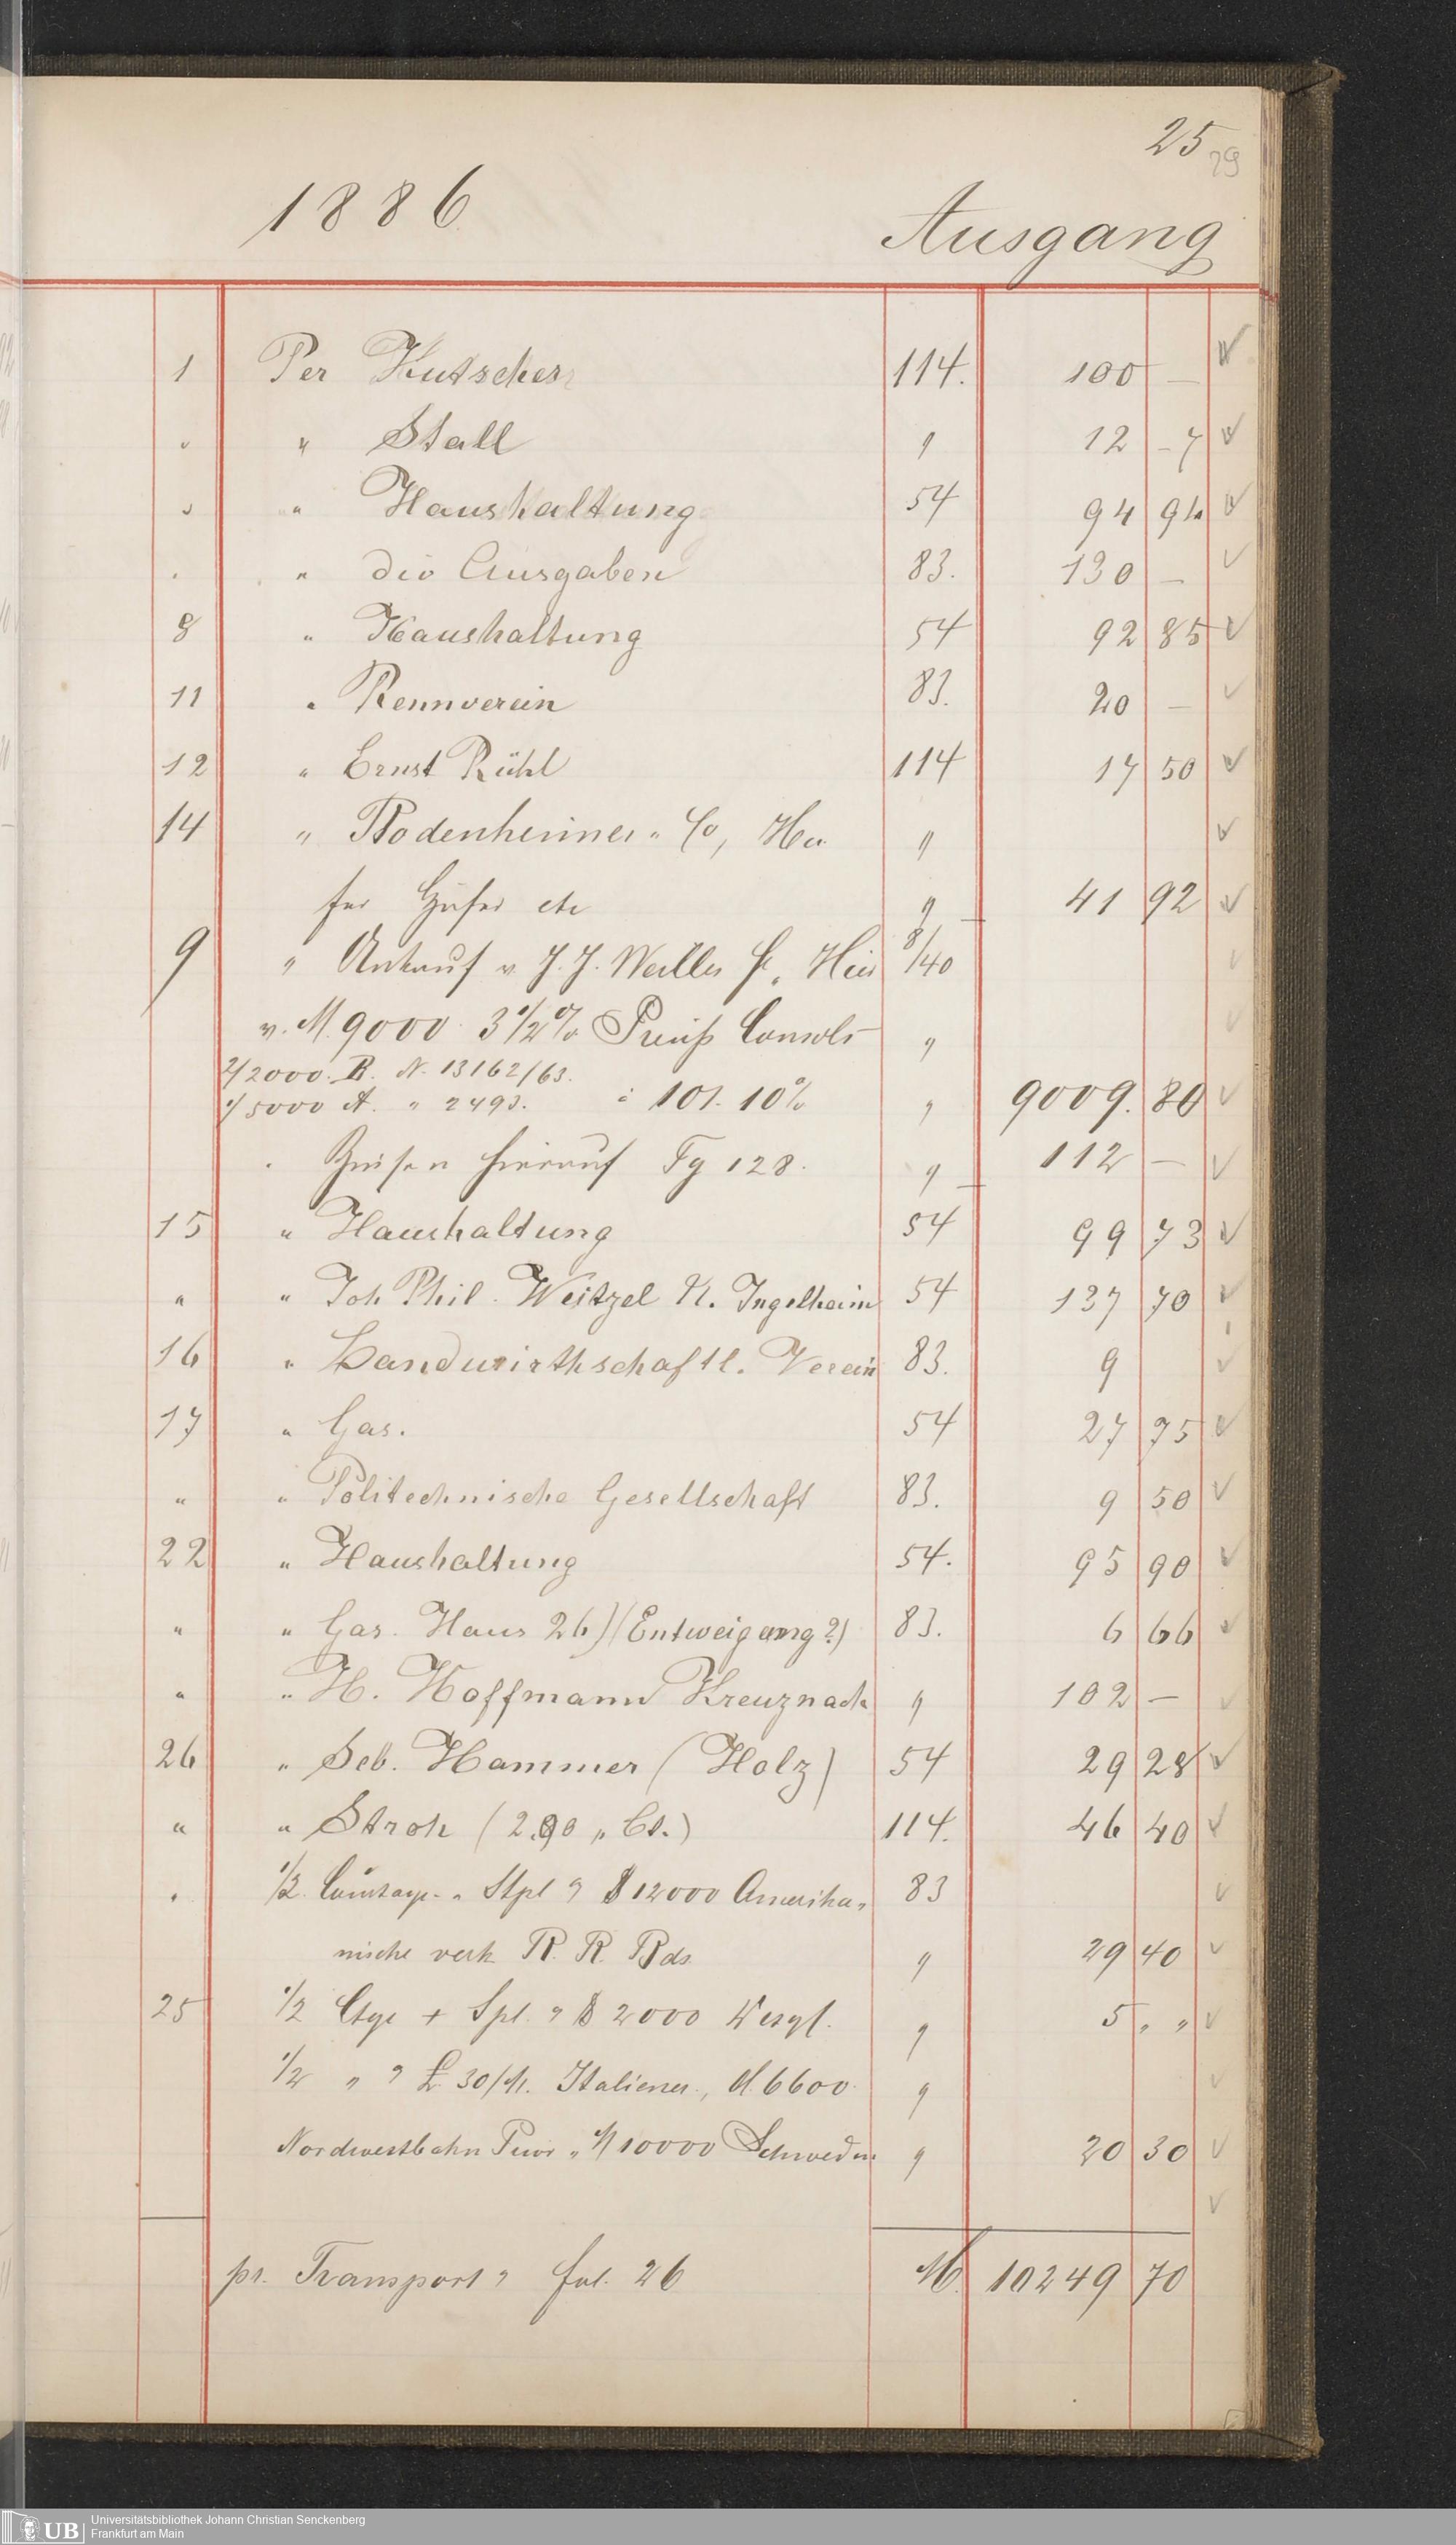 25
29
1886 Ausgang
1 Per Kutscher 114. 100 —
" " Stall " 12 - 7
" " Haushaltung 54 94 94
" " die Ausgaben 83. 130 —
8 " Haushaltung 54 92 85
11 " Rennverein 83. 20 —
12 " Ernst Rühl 114 17 50
14 " Bodenheimer & Co, Hier "
für Hafer etc " 41 92
9 " Ankauf v. J. J. Weiller S., Hier 8/40
v. M. 9000 3 1/2 % Preuß Consols "
2/2000. B. N. 13162/63.
1/5000 A. " 2493. à 101. 10% " 9009. 80
" Zinsen hierauf Tg 128. " 112 —
15 " Haushaltung 54 99 73
" " Joh Phil. Weitzel N. Ingelheim 54 137 70
16 " Landwirthschaftl. Verein 83. 9
17 " Gas. 54 27 75
" " Politechnische Gesellschaft 83. 9 50
22 " Haushaltung 54. 95 90
" " Gas. Haus 26) (Entweigerung?) 83. 6 66
" " H. Hoffmann Kreuznach " 102 —
26 " Seb. Hammer (Holz) 54 29 28
" " Stroh (2.90 " Ct.) 114. 46 40
" 1/2 Courtage & Stpl $ 12000 Amerika-
83
nische versch R. R. Bds. " 29 40
25 1/2 Ctge + Spl. $ 2000 " 5 " "
1/2 " £ 30/M. Italiener, M. 6600 "
Nordwestbahn Prior " 10000 Schweden " 20 30
pr. Transport fol. 26 M. 10249 70
Universitätsbibliothek Johann Christian Senckenberg
UB Frankfurt am Main